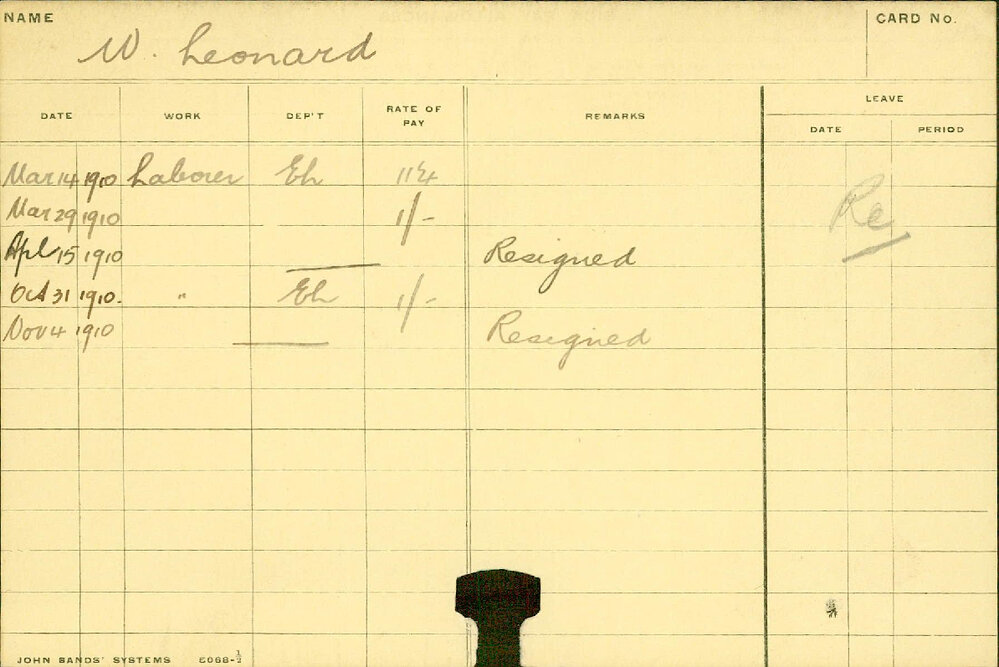 NAME
W. Leonard
CARD No.
DATE WORK DEP'T RATE OF PAY REMARKS LEAVE
DATE PERIOD
Mar 14 1910 Laborer Eh 11¼
Mar 29 1910 1/-
Apl 15 1910 Resigned
Oct 31 1910. " Eh 1/-
Nov 4 1910 Resigned
Re
JOHN SANDS' SYSTEMS